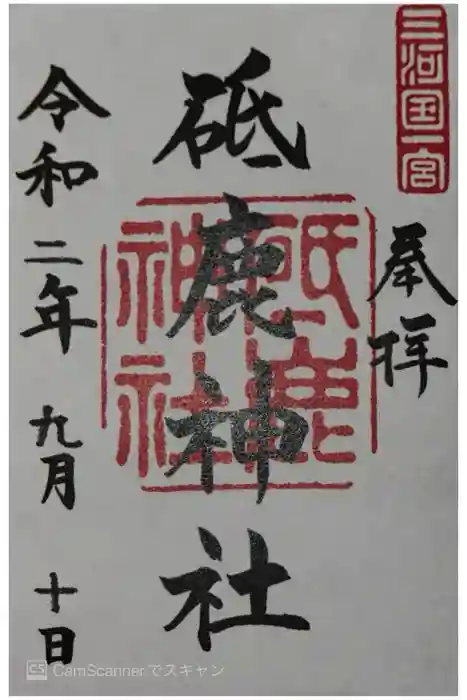 三河国一宮
奉拝
砥鹿神社
砥鹿神社
令和二年 九月 十日
CS CamScannerでスキャン